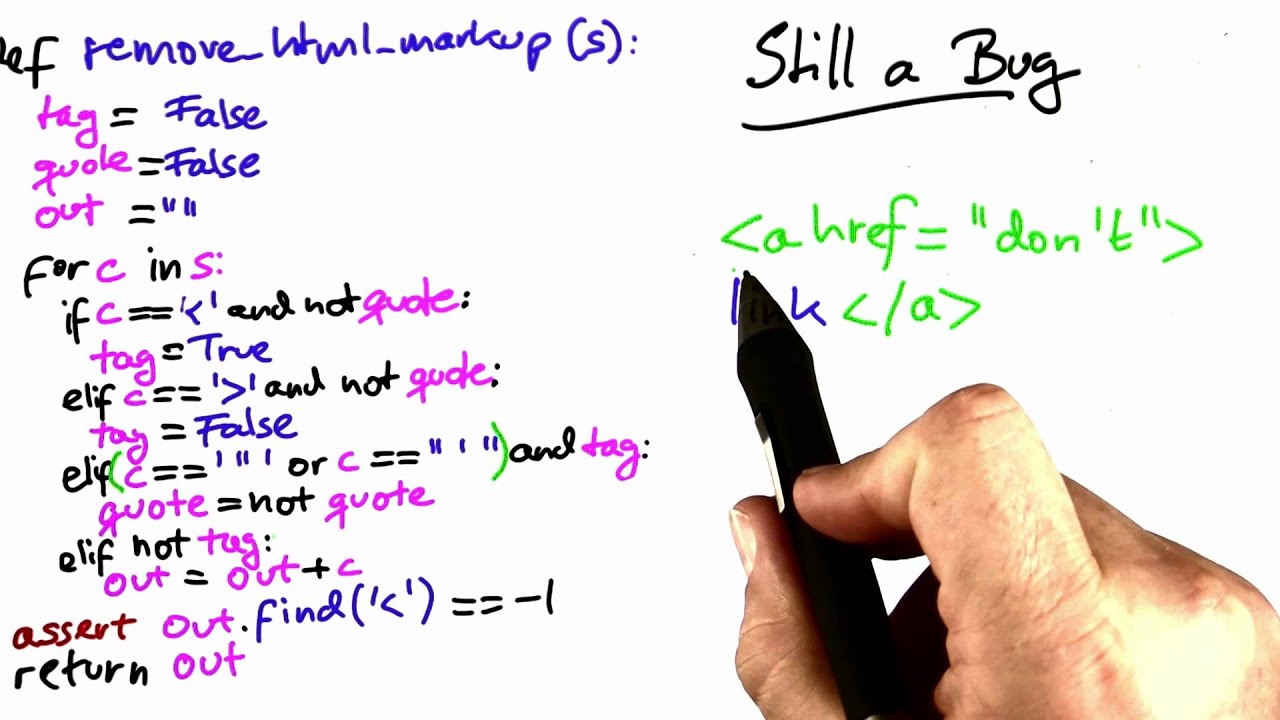 def remove_html_markup (s):
tag = False
quote = False
out = ""
for c in s:
if c == '<' and not quote:
tag = True
elif c == '>' and not quote:
tag = False
elif (c == '"' or c == "'") and tag:
quote = not quote
elif not tag:
out = out + c
assert out.find('<') == -1
return out
Still a Bug
<a href = "don't">
link </a>